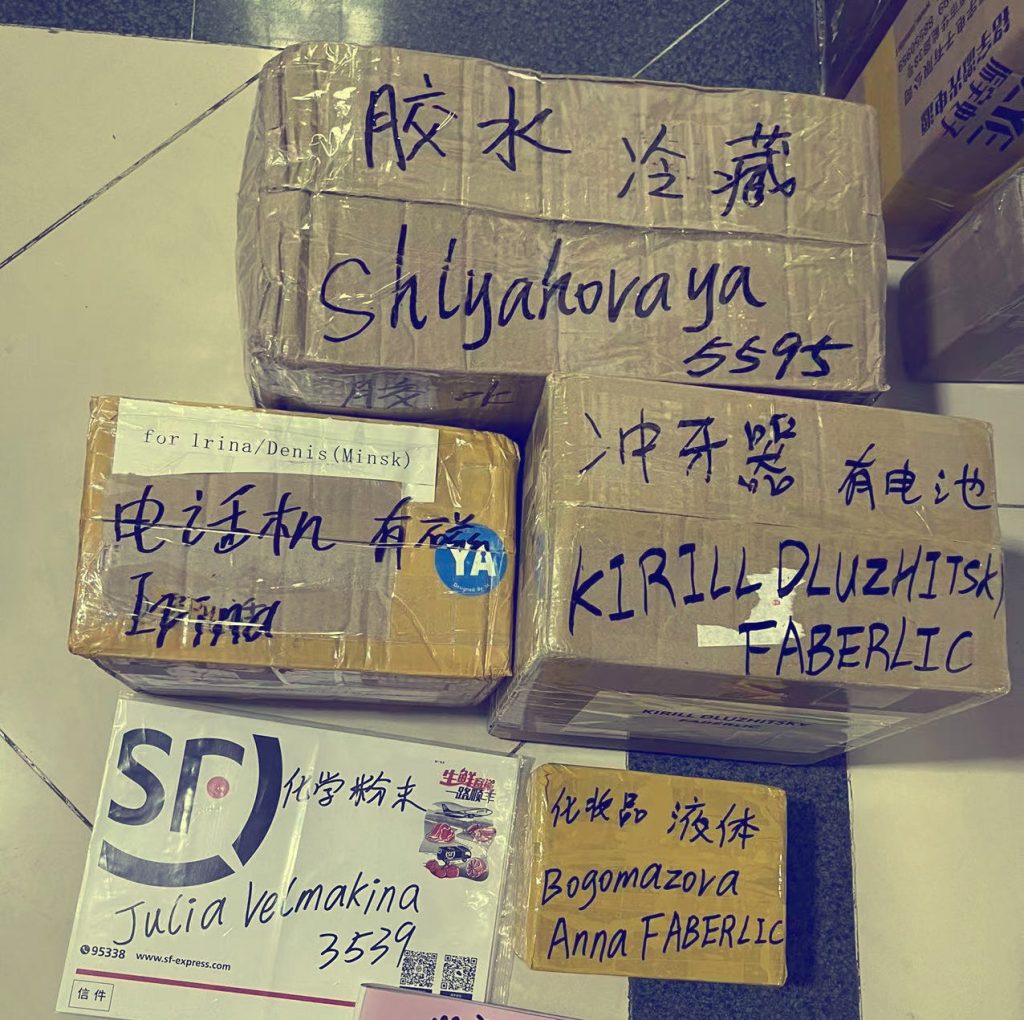 胶水 冷藏
Shlyahovaya
5595
胶水
for Irina/Denis(Minsk)
电话机 有磁
YA
Irina
冲牙器 有电池
KIRILL DLUZHITSKY
FABERLIC
KIRILL DLUZHITSKY
FABERLIC
SF
化学粉末
生鲜
一路顺丰
Julia Velmakina
3539
95338 www.sf-express.com
信件
化妆品 液体
Bogomazova
Anna FABERLIC